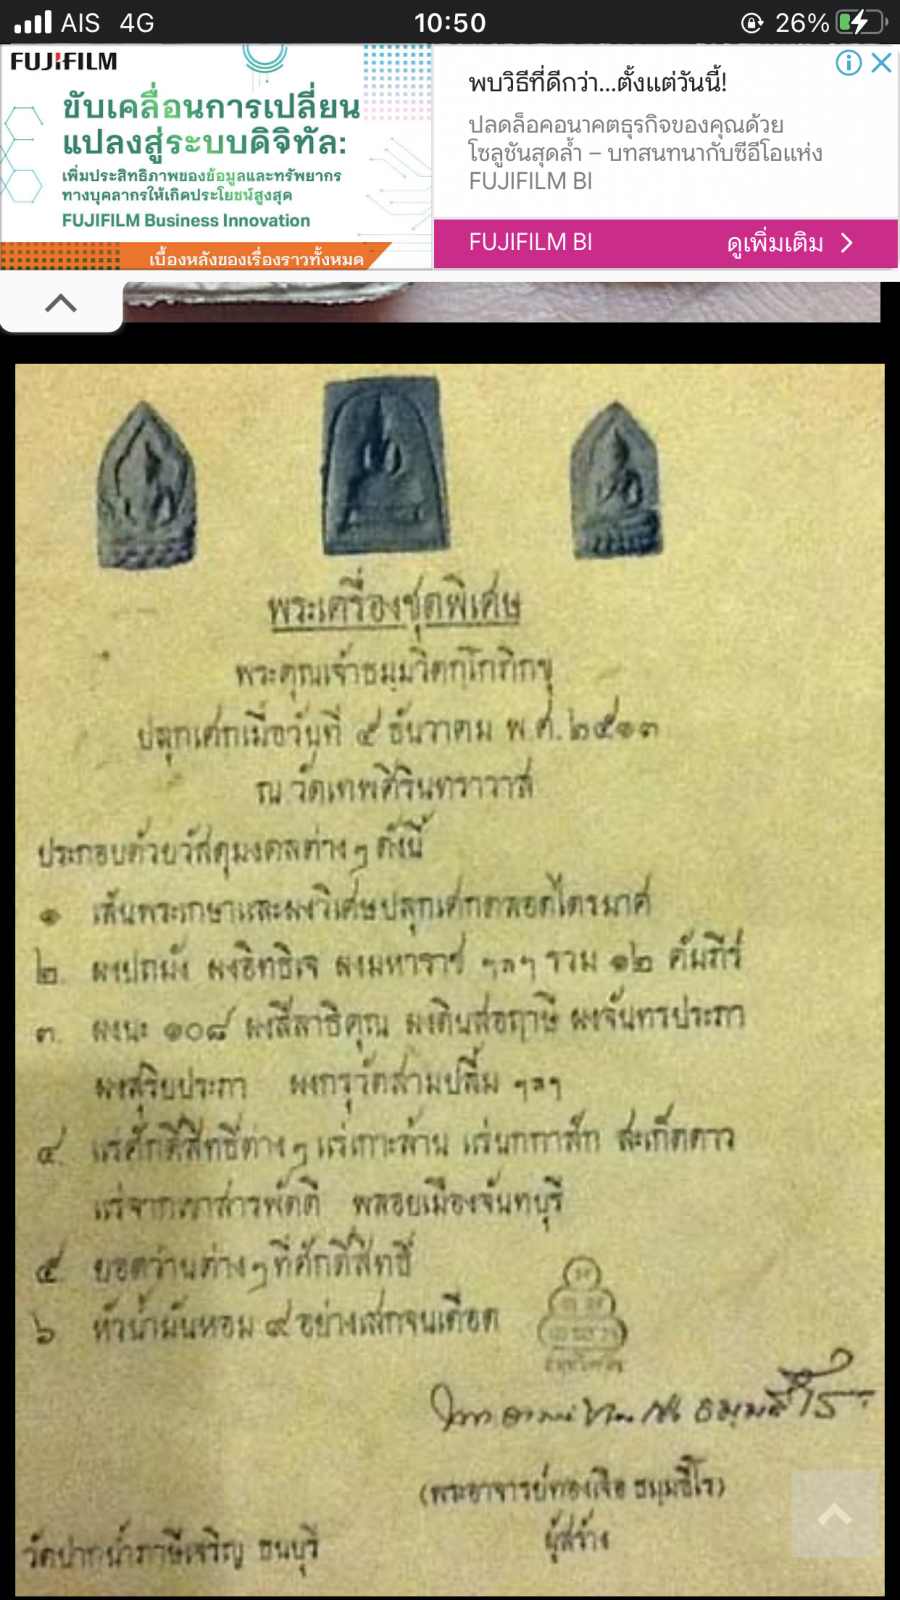 AIS 4G 10:50 26%
FUJIFILM
ขับเคลื่อนการเปลี่ยน
แปลงสู่ระบบดิจิทัล:
เพิ่มประสิทธิภาพของข้อมูลและทรัพยากร
ทางบุคลากรให้เกิดประโยชน์สูงสุด
FUJIFILM Business Innovation
เบื้องหลังของเรื่องราวทั้งหมด
พบวิธีที่ดีกว่า...ตั้งแต่วันนี้!
ปลดล็อคอนาคตธุรกิจของคุณด้วย
โซลูชันสุดล้ำ – บทสนทนากับซีอีโอแห่ง
FUJIFILM BI
FUJIFILM BI ดูเพิ่มเติม
พระเครื่องชุดพิเศษ
พระคุณเจ้าธมฺมวิตกฺโกภิกขุ
ปลุกเศกเมื่อวันที่ ๕ ธันวาคม พ.ศ.๒๕๑๓
ณ วัดเทพศิรินทราวาส
ประกอบด้วยวัสดุมงคลต่าง ๆ ดังนี้
๑ เส้นพระเกษาและผงวิเศษปลุกเศกตลอดไตรมาศ
๒. ผงปถมัง ผงอิทธิเจ ผงมหาราช ฯลฯ รวม ๑๒ คัมภีร์
๓. ผงนะ ๑๐๘ ผงสีสาธิคุณ ผงดินสอฤาษี ผงจันทรประภา
ผงสุริยประภา ผงกรุวัดสามปลื้ม ฯลฯ
๔. แร่ศักดิ์สิทธิ์ต่าง ๆ แร่เกาะล้าน แร่บกทาสัก สะเก็ดดาว
แร่จากเขาสารพัดดี พลอยเมืองจันทบุรี
๕ ยอดว่านต่าง ๆ ที่ศักดิ์สิทธิ์
๖ หัวน้ำมันหอม ๙ อย่างเสกจนเดือด
(พระอาจารย์ทองเจือ ธมฺมธีโร)
ผู้สร้าง
วัดปากน้ำภาษีเจริญ ธนบุรี